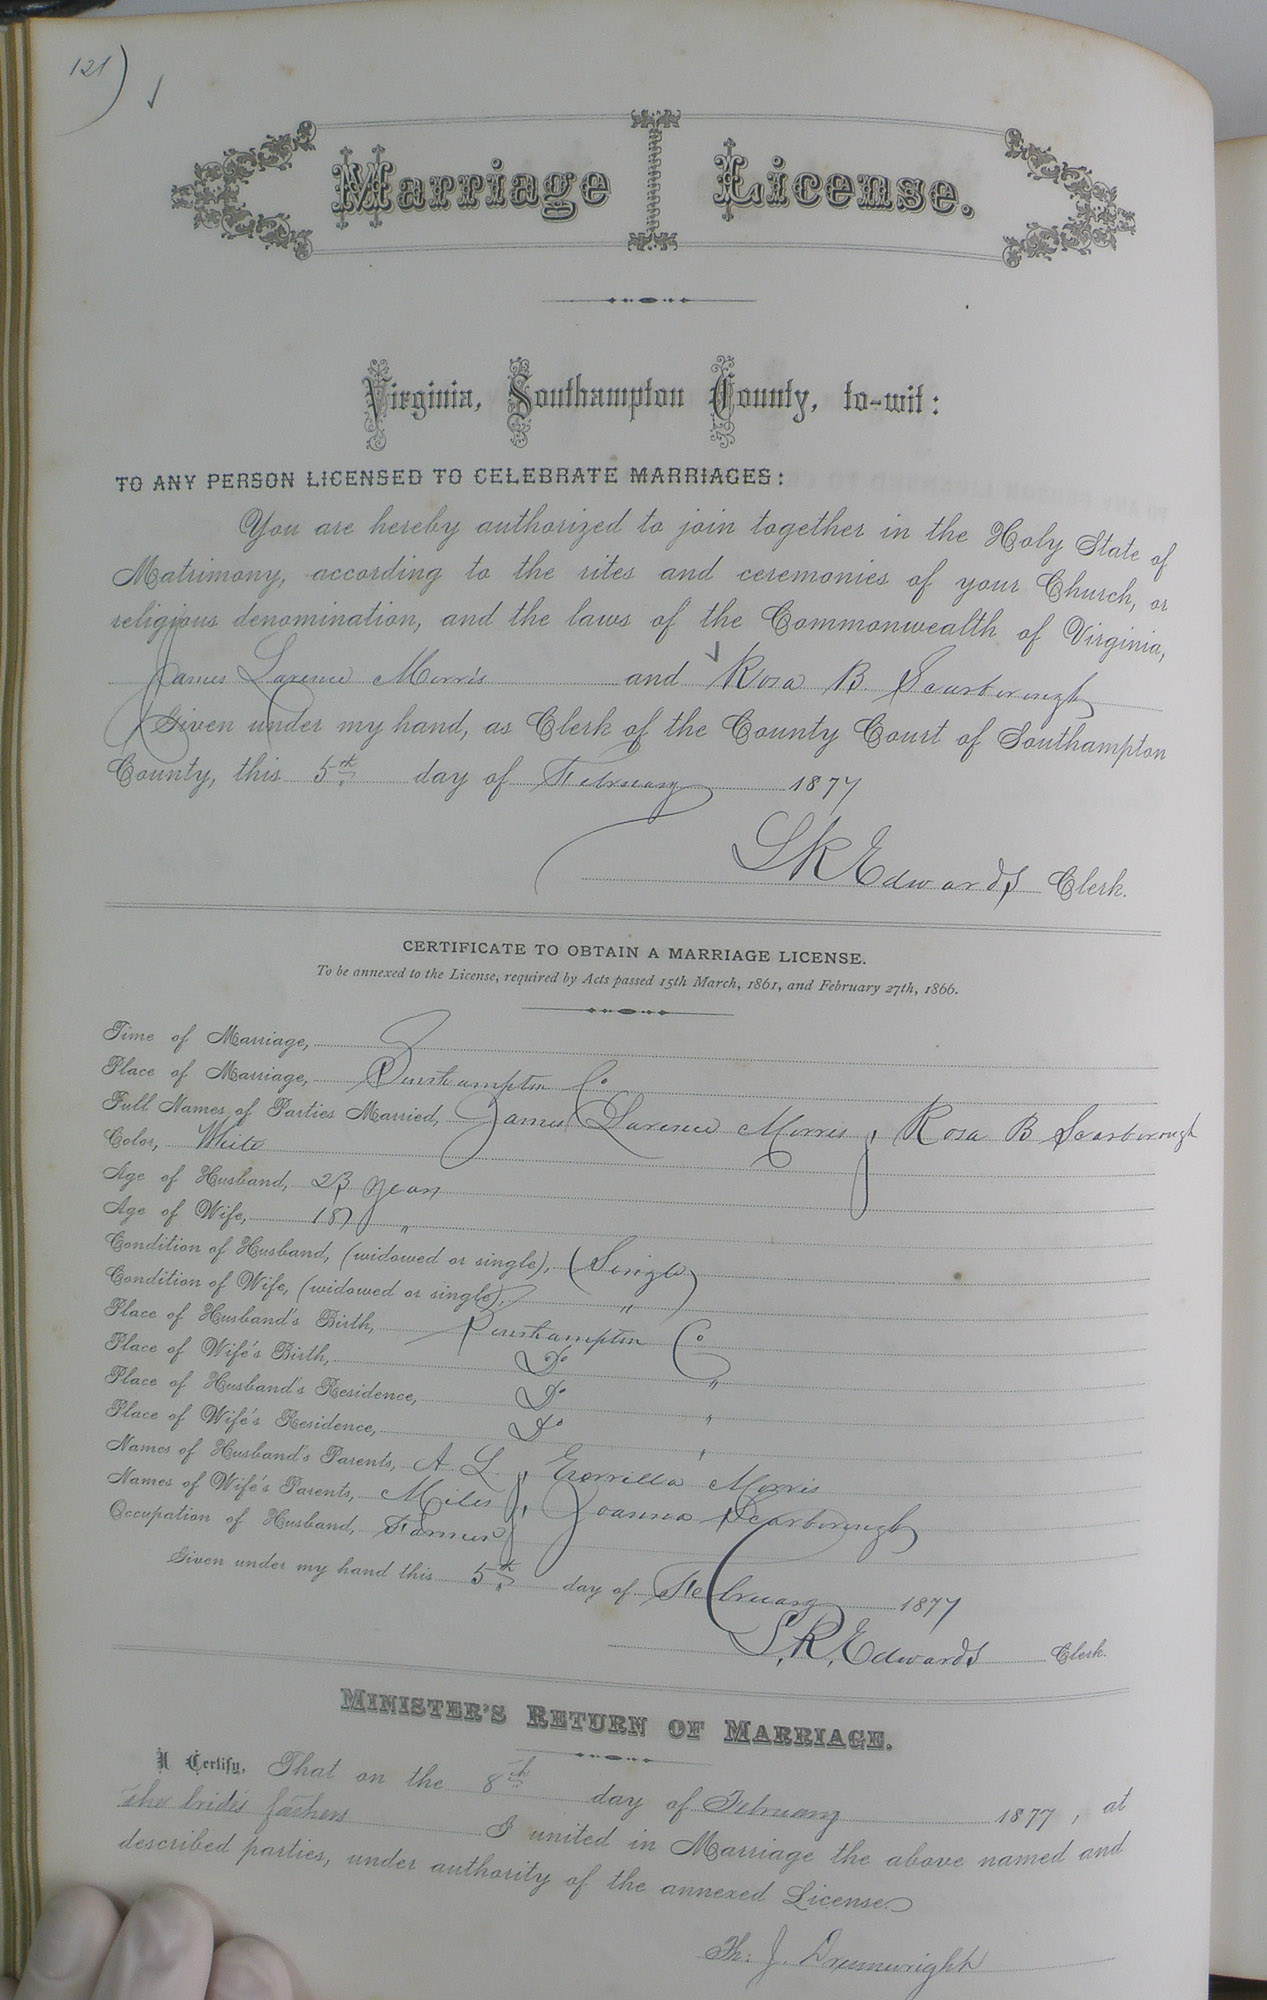 121)
Marriage License.
Virginia, Southampton County, to-wit:
TO ANY PERSON LICENSED TO CELEBRATE MARRIAGES:
You are hereby authorized to join together in the Holy State of
Matrimony, according to the rites and ceremonies of your Church, or
religious denomination, and the laws of the Commonwealth of Virginia,
James Larence Morris and Rosa B. Scarborough
Given under my hand, as Clerk of the County Court of Southampton
County, this 5th day of February 1877
L R Edwards Clerk.
CERTIFICATE TO OBTAIN A MARRIAGE LICENSE.
To be annexed to the License, required by Acts passed 15th March, 1861, and February 27th, 1866.
Time of Marriage,
Place of Marriage, Southampton Co
Full Names of Parties Married, James Larence Morris, Rosa B Scarborough
Color, White
Age of Husband, 23 years
Age of Wife, 18 "
Condition of Husband, (widowed or single), (Single)
Condition of Wife, (widowed or single), "
Place of Husband's Birth, Southampton Co
Place of Wife's Birth, Do "
Place of Husband's Residence, Do "
Place of Wife's Residence, Do "
Names of Husband's Parents, A. L. Morris
Names of Wife's Parents, Miles, Joanna Scarborough
Occupation of Husband, Farmer
Given under my hand this 5th day of February 1877
L. R. Edwards Clerk.
MINISTER'S RETURN OF MARRIAGE.
I Certify, That on the 8th day of February 1877, at
the brides fathers I united in Marriage the above named and
described parties, under authority of the annexed License.
Th: J. Drumwright